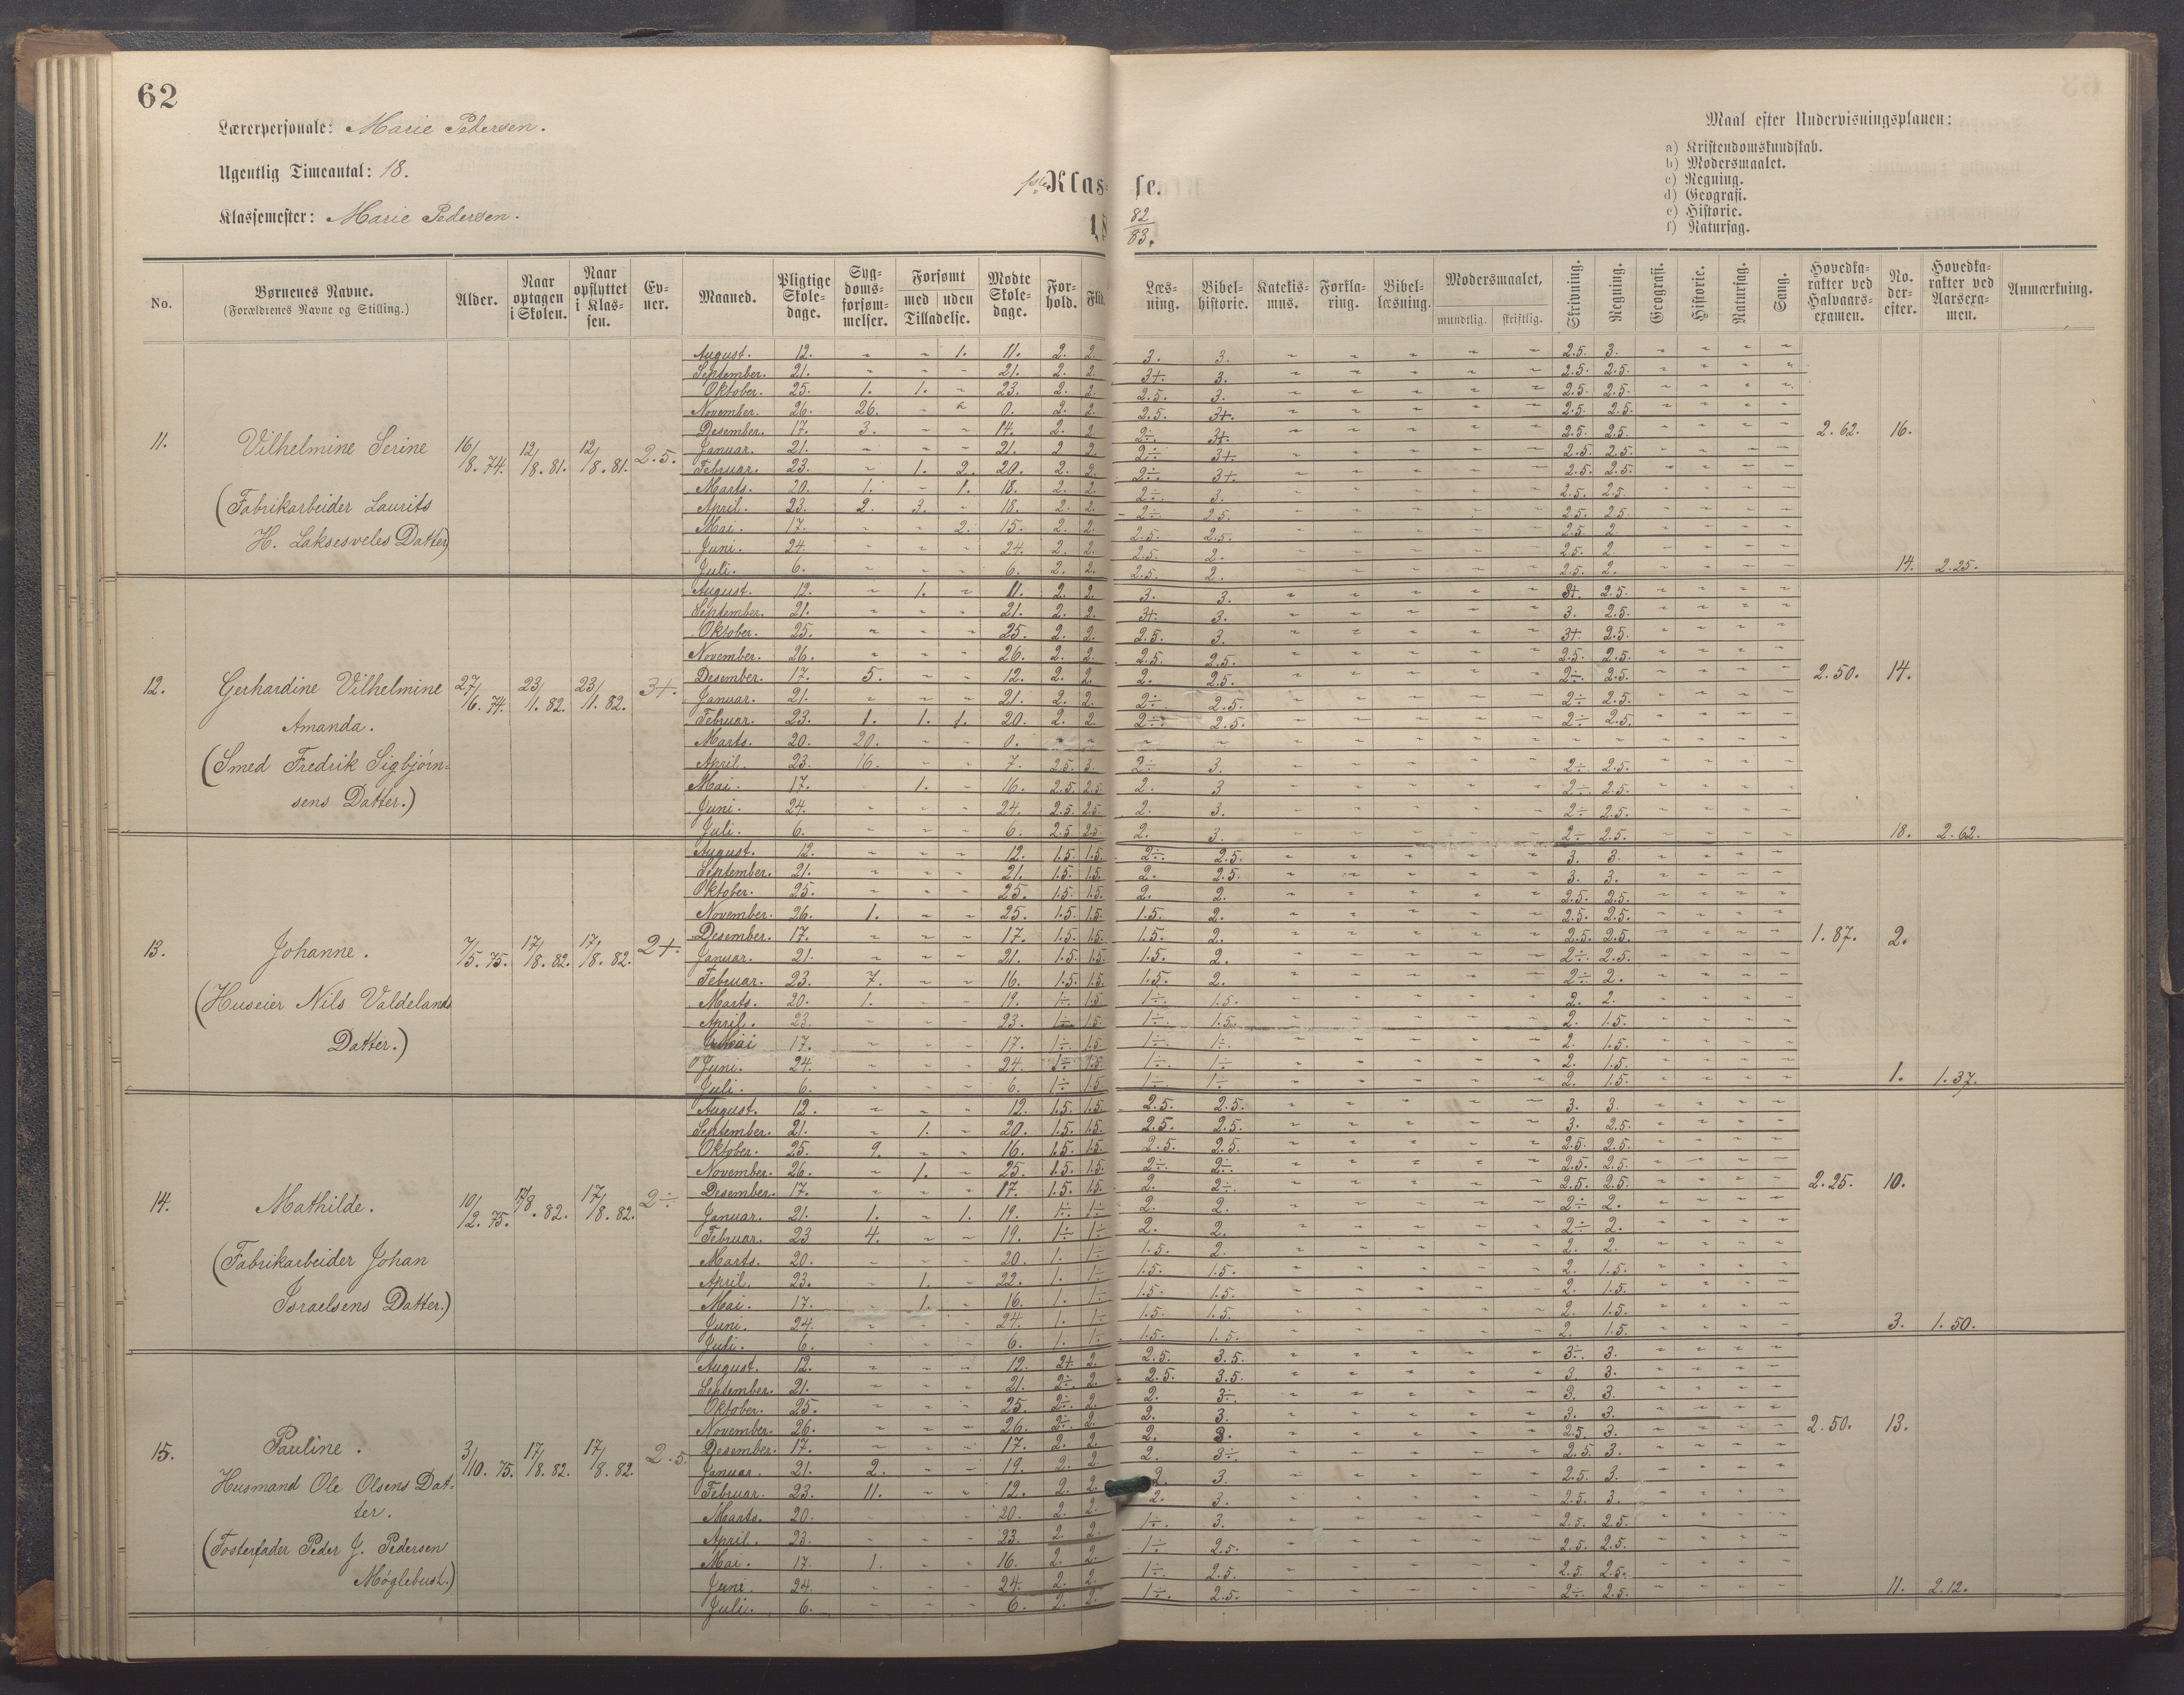 62
Lærerpersonale: Marie Pedersen.
Ugentlig Timeantal: 18.
Klassemester: Marie Pedersen.
1ste Klasse.
18 82/83.
Maal efter Undervisningsplanen:
a) Kristendomskundskab.
b) Modersmaalet.
c) Regning.
d) Geografi.
e) Historie.
f) Naturfag.
No. | Børnenes Navne. (Forældrenes Navne og Stilling.) | Alder. | Naar optagen i Skolen. | Naar opflyttet i Klassen. | Evner. | Maaned. | Pligtige Skoledage. | Sygdomsforsømmelser. | Forsømt med uden Tilladelse. | Mødte Skoledage. | Forhold. | Flid. | Læsning. | Bibelhistorie. | Katekismus. | Forklaring. | Bibellæsning. | Modersmaalet, mundtlig. skriftlig. | Skrivning. | Regning. | Geografi. | Historie. | Naturfag. | Sang. | Hovedkarakter ved Halvaarsexamen. | No. derefter. | Hovedkarakter ved Aarsexamen. | Anmærkning.
11. Vilhelmine Serine 16/8. 74. 12/8. 81. 12/8. 81. 2.5. 2.62. 16.
(Fabrikarbeider Laurits
H. Laksesveles Datter)
August. 12. - - 1. 11. 2. 2. 3. 3. 2.5. 3.
September. 21. - - - 21. 2. 2. 3+. 3. 2.5. 2.5.
Oktober. 25. 1. 1. - 23. 2. 2. 2.5. 3. 2.5. 2.5.
November. 26. 26. - - 0. 2. 2. 2.5. 3+. 2.5. 2.5.
Desember. 17. 3. - - 14. 2. 2. 2÷. 3+. 2.5. 2.5.
Januar. 21. - - - 21. 2. 2. 2÷. 3+. 2.5. 2.5.
Februar. 23. - 1. 2. 20. 2. 2. 2÷. 3+. 2.5. 2.5.
Marts. 20. 1. - 1. 18. 2. 2. 2÷. 3. 2.5. 2.5.
April. 23. 2. 3. - 18. 2. 2. 2÷. 2.5. 2.5. 2.5.
Mai. 17. - - 2. 15. 2. 2. 2.5. 2.5. 2.5. 2.
Juni. 24. - - - 24. 2. 2. 2.5. 2. 2.5. 2.
Juli. 6. - - - 6. 2. 2. 2.5. 2. 2.5. 2. 14. 2.25.
12. Gerhardine Vilhelmine 27/6. 74. 23/1. 82. 23/1. 82. 3+. 2.50. 14.
Amanda.
(Smed Fredrik Sigbjørn-
sens Datter.)
August. 12. - 1. - 11. 2. 2. 3. 3. 3+. 2.5.
September. 21. - - - 21. 2. 2. 3+. 3. 3. 2.5.
Oktober. 25. - - - 25. 2. 2. 2.5. 3. 3+. 2.5.
November. 26. - - - 26. 2. 2. 2.5. 2.5. 2.5. 2.5.
Desember. 17. 5. - - 12. 2. 2. 2. 2.5. 2÷. 2.5.
Januar. 21. - - - 21. 2. 2. 2÷. 2.5. 2÷. 2.5.
Februar. 23. 1. 1. 1. 20. 2. 2. 2÷. 2.5. 2÷. 2.5.
Marts. 20. 20. - - 0. - - - - - -
April. 23. 16. - - 7. 2.5. 3. 2÷ 3. 2÷. 2.5.
Mai. 17. 1. - 16. 2.5. 2.5. 2. 3 2÷. 2.5.
Juni. 24. - - - 24. 2.5. 2.5. 2. 3. 2÷ 2.5.
Juli. 6. - - - 6. 2.5 2.5. 2. 3. 2÷ 2.5. 18. 2.62.
13. Johanne. 7/5. 75. 17/8. 82. 17/8. 82. 2+. 1.87. 2.
(Huseier Nils Valdelands
Datter.)
August. 12. - - - 12. 1.5. 1.5. 2÷. 2.5. 3. 3.
September. 21. - - - 21. 1.5. 1.5. 2. 2.5. 3. 3.
Oktober. 25. - - - 25. 1.5. 1.5. 2. 2. 2.5. 2.5.
November. 26. 1. - - 25. 1.5. 1.5. 1.5. 2. 2.5. 2.5.
Desember. 17. - - - 17. 1.5. 1.5. 1.5. 2. 2.5. 2.5.
Januar. 21. - - - 21. 1.5. 1.5. 1.5. 2. 2÷. 2.5.
Februar. 23. 7. - - 16. 1.5. 1.5. 1.5. 2. 2÷ 2.
Marts. 20. 1. - - 19. 1÷. 1.5 1÷. 1.5. 2. 2.
April. 23. - - - 23. 1÷ 1.5. 1÷. 1.5. 2. 1.5.
Mai 17. - - - 17. 1÷. 1.5 1÷. 1÷. 2. 1.5.
Juni. 24. - - - 24. 1÷ 1.5. 1÷. 1÷. 2. 1.5.
Juli. 6. - - - 6. 1÷ 1.5. 1÷. 1÷. 2. 1.5. 1. 1.37.
14. Mathilde. 10/12. 75. 17/8. 82. 17/8. 82. 2÷ 2.25. 10.
(Fabrikarbeider Johan
Israelsens Datter.)
August. 12. - - - 12. 1.5. 1.5. 2.5. 2.5. 3. 3.
September. 21. - 1. - 20. 1.5. 1.5. 2.5. 2.5. 3. 2.5.
Oktober. 25. 9. - - 16. 1.5. 1.5. 2.5. 2.5. 2.5. 2.5.
November. 26. - 1. - 25. 1.5. 1.5. 2÷. 2÷. 2.5. 2.5.
Desember. 17. - - - 17. 1.5. 1.5. 2. 2÷. 2.5. 2.5.
Januar. 21. 1. - 1. 19. 1÷ 1÷ 2. 2. 2÷ 2.
Februar. 23 4. - - 19. 1÷ 1÷ 2. 2. 2÷ 2.
Marts. 20. - - - 20. 1. 1÷ 1.5. 2. 2. 2.
April. 23. - 1. - 22. 1. 1÷ 1.5. 1.5. 2. 1.5.
Mai. 17. - 1. - 16. 1. 1÷ 1.5. 1.5. 2. 1.5.
Juni. 24. - - - 24. 1. 1÷ 1.5. 1.5. 2. 1.5.
Juli. 6. - - - 6. 1. 1÷ 1.5. 1.5. 2. 1.5. 3. 1.50.
15. Pauline. 3/10. 75. 17/8. 82. 17/8. 82. 2.5. 2.50. 13.
Husmand Ole Olsens Dat-
ter.
(Fosterfader Peder J. Pedersen
Møglebust.)
August. 12. - - - 12. 2+. 2. 2.5. 3.5. 3÷. 3.
September. 21. - - - 21. 2÷. 2. 2.5. 3.5. 3 3.
Oktober. 25. - - - 25. 2÷. 2. 2. 3÷ 3. 3.
November. 26. - - - 26. 2÷. 2. 2. 3. 3. 3.
Desember. 17. - - - 17. 2. 2. 2. 3. 2.5. 3.
Januar. 21. 2. - - 19. 2. 2. 2. 3÷ 2.5. 3.
Februar. 23. 11. - - 12. 2. 2. 2. 3. 2.5. 3.
Marts. 20. - - - 20. 2. 2. 2. 3. 2.5. 3.
April. 23. - - - 23. 2. 2. 1÷. 3. 2.5. 2.5.
Mai. 17. 1. - - 16. 2. 2. 1÷ 2.5. 2.5. 2.5.
Juni. 24. - - - 24. 2. 2. 1÷ 2.5. 2.5. 2.5.
Juli. 6. - - - 6. 2. 2. 1÷. 2.5. 2÷. 2.5. 11. 2.12.